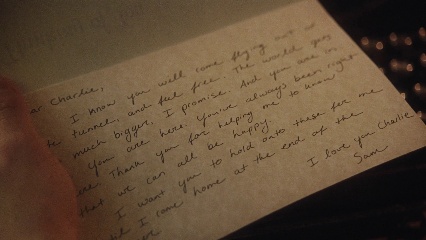 ar Charlie,
I know you will come flying out of
tunnel, and feel free. The world gets
much bigger, I promise. And you are in
You are here. You've always been right
me. Thank you for helping me to know
that we can all be happy.
I want you to hold onto these for me
til I come home at the end of the
I love you Charlie
Sam